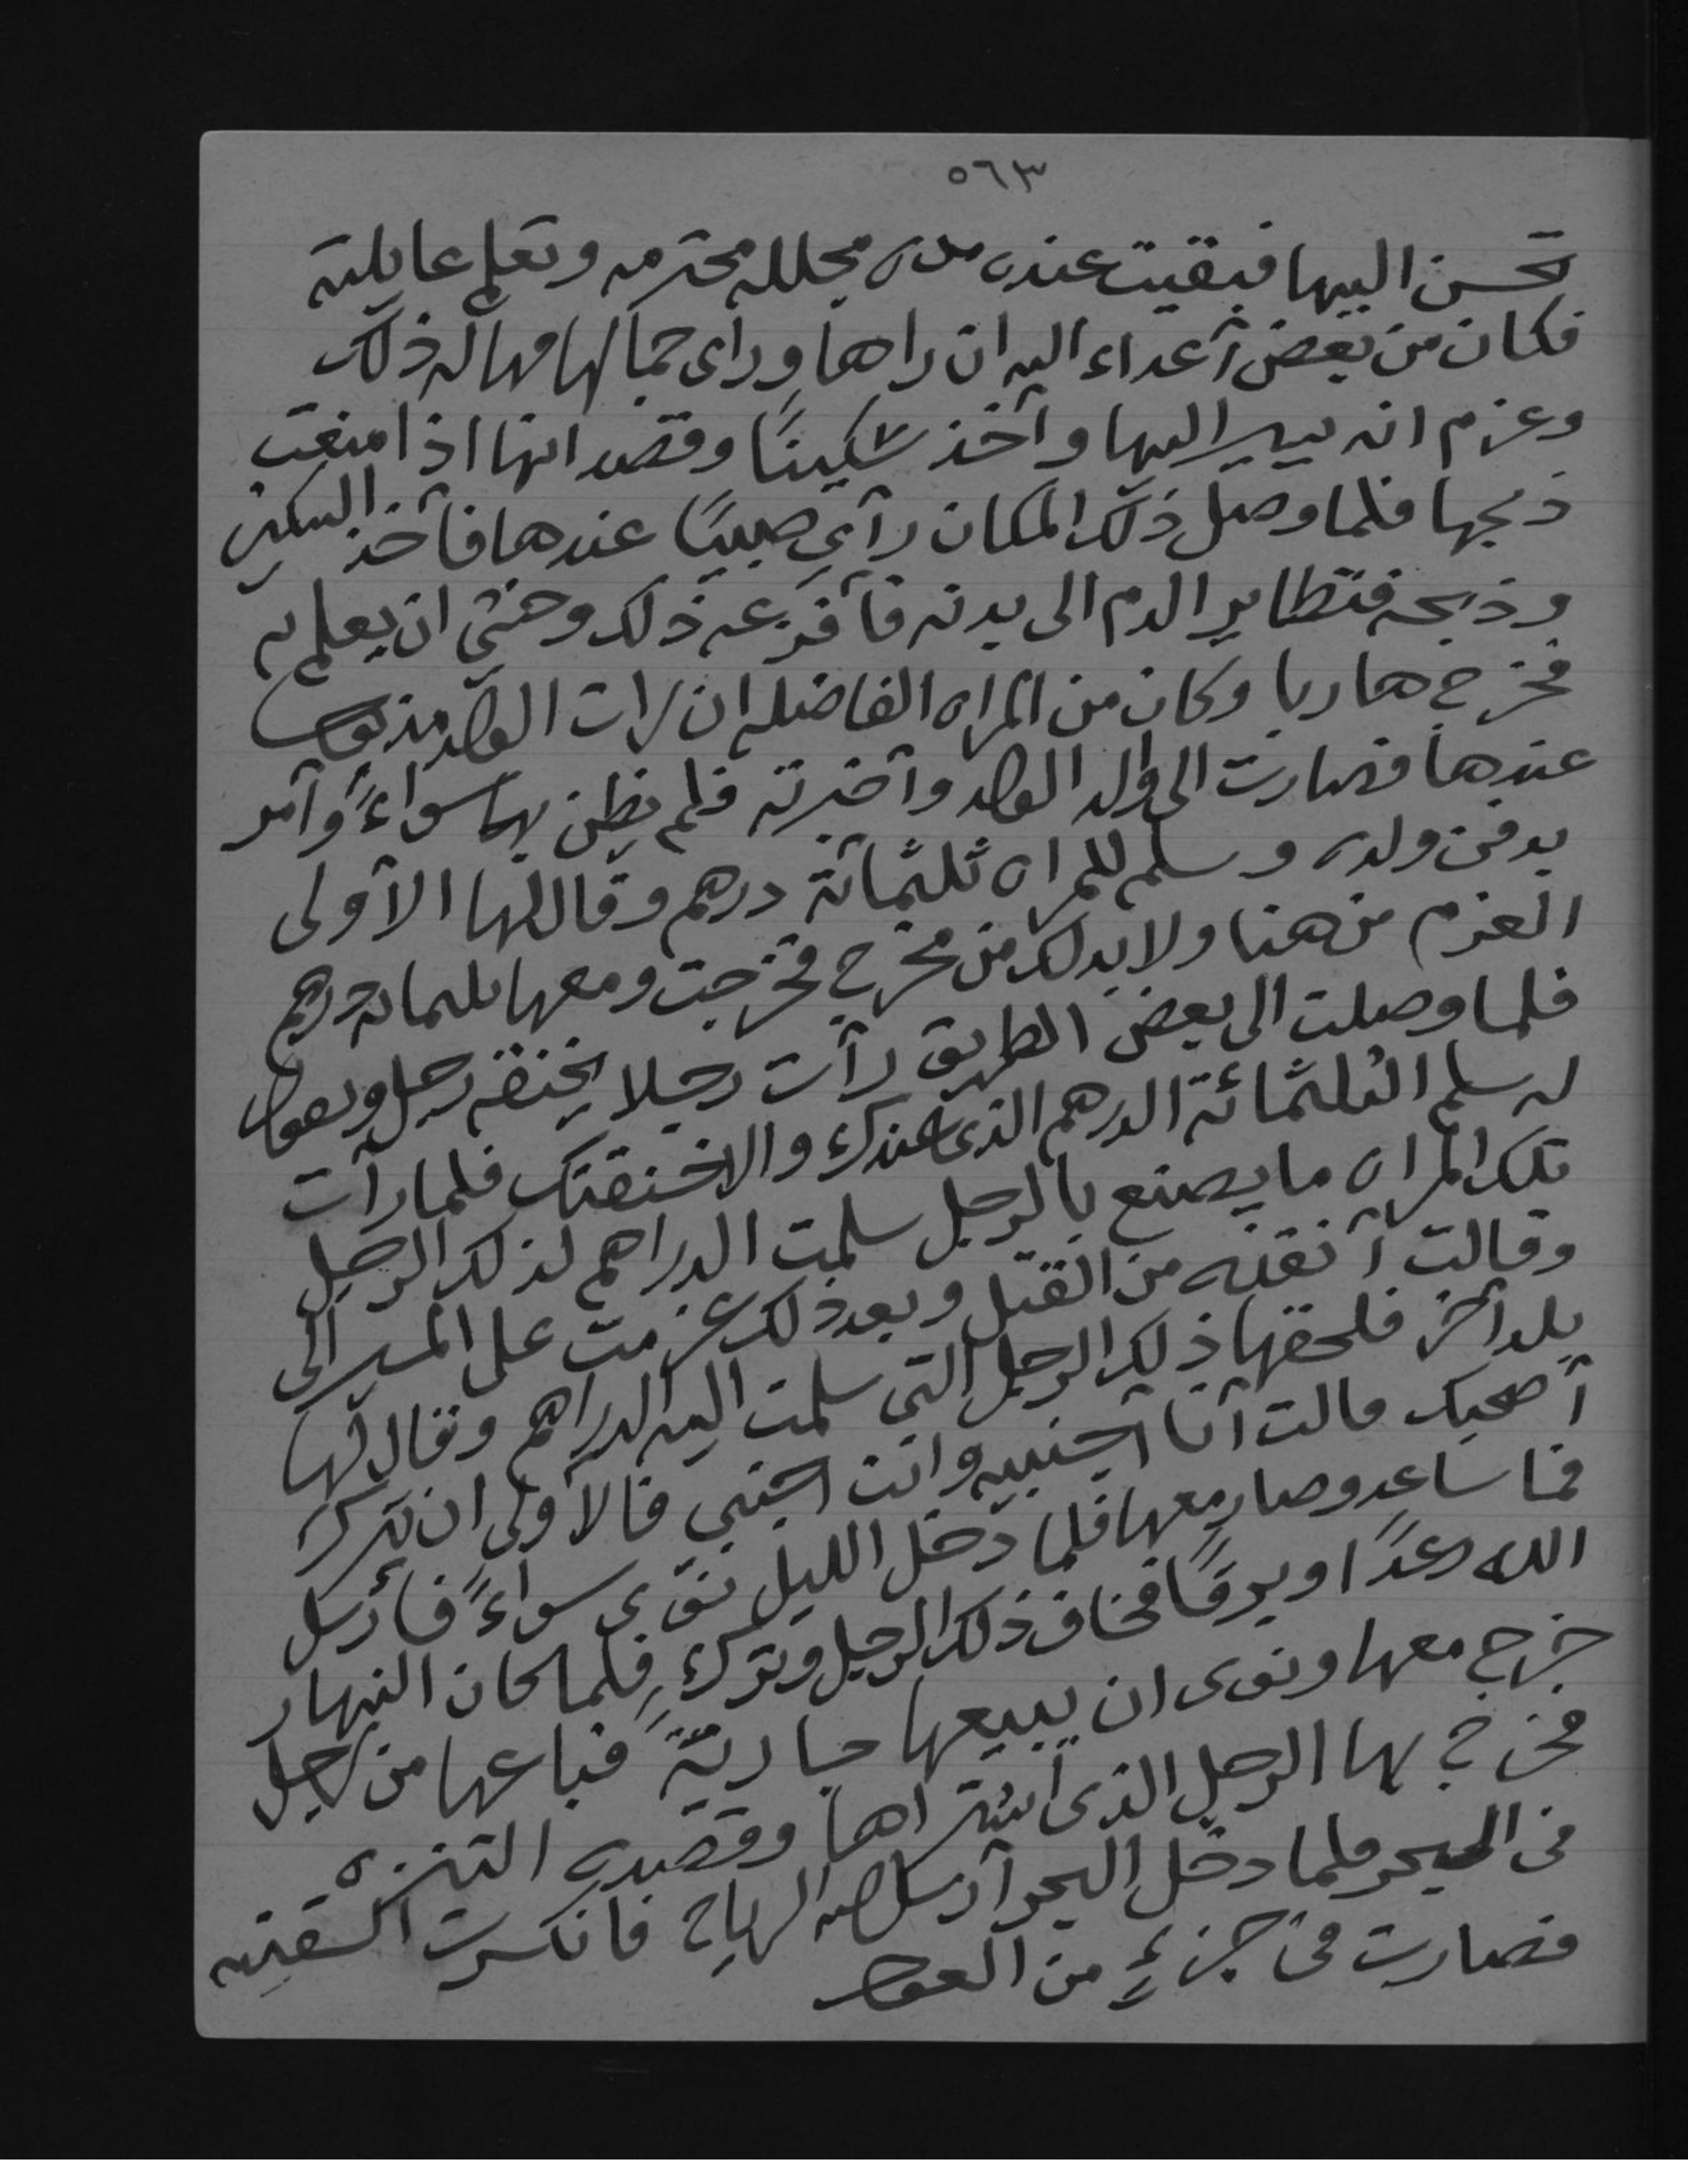 ٥٦٣
تحسن اليها فبقيت عنده مده مجلله محترمه وتعلم عايلته
فكان من بعض آعداء اليه ان راها وراى جمالها مهاله ذلك
وعزم انه يسير اليها وآخذ سكينًا وقصد انها اذا امتنعت
ذبحها فلما وصل ذلك المكان رآى صبيًا عندها فآخذ السكين
وذبحه فتطاير الدم الى بدنه فآفزعه ذلك وخشي ان يعلم به
فخرج هاربا وكان من المراه الفاضله ان رات الولد مذبوحا
عندها فصارت الى والد الولد وآخبرته فلم يظن بها سواءً وآمر
بدفن ولده وسلم للمراه ثلثمائة درهم وقال لها الآولى
العزم من هنا ولا بد لك من مخرج فخرجت ومعها ثلثمائة درهم
فلما وصلت الى بعض الطريق رآت رجلا يخنقه رجل ويقول
له سلم الثلثمائة الدرهم الذى عندك والا خنقتك فلما رآت
تلك المراه ما يصنع بالرجل سلمت الدراهم لذلك الرجل
وقالت آنقذه من القتل وبعد ذلك عزمت على المسير الى
بلد آخر فلحقها ذلك الرجل التى سلمت اليه الدراهم وقال لها
آصحبك قالت آنا آجنبيه وانت اجنبي فالآولى ان تتركني
فما ساعد وصار معها فلما دخل الليل نوى سواءً فأرسل
الله رعدًا وبرقًا فخاف ذلك الرجل وترك فلما كان النهار
خرج معها ونوى ان يبيعها جاريةً فباعها من رجل
فخرج بها الرجل الذى اشتراها وقصده التنزه
فى البحر فلما دخل البحر آرسل الله الرياح فانكسرت السفينه
فصارت فى جزءٍ من العود